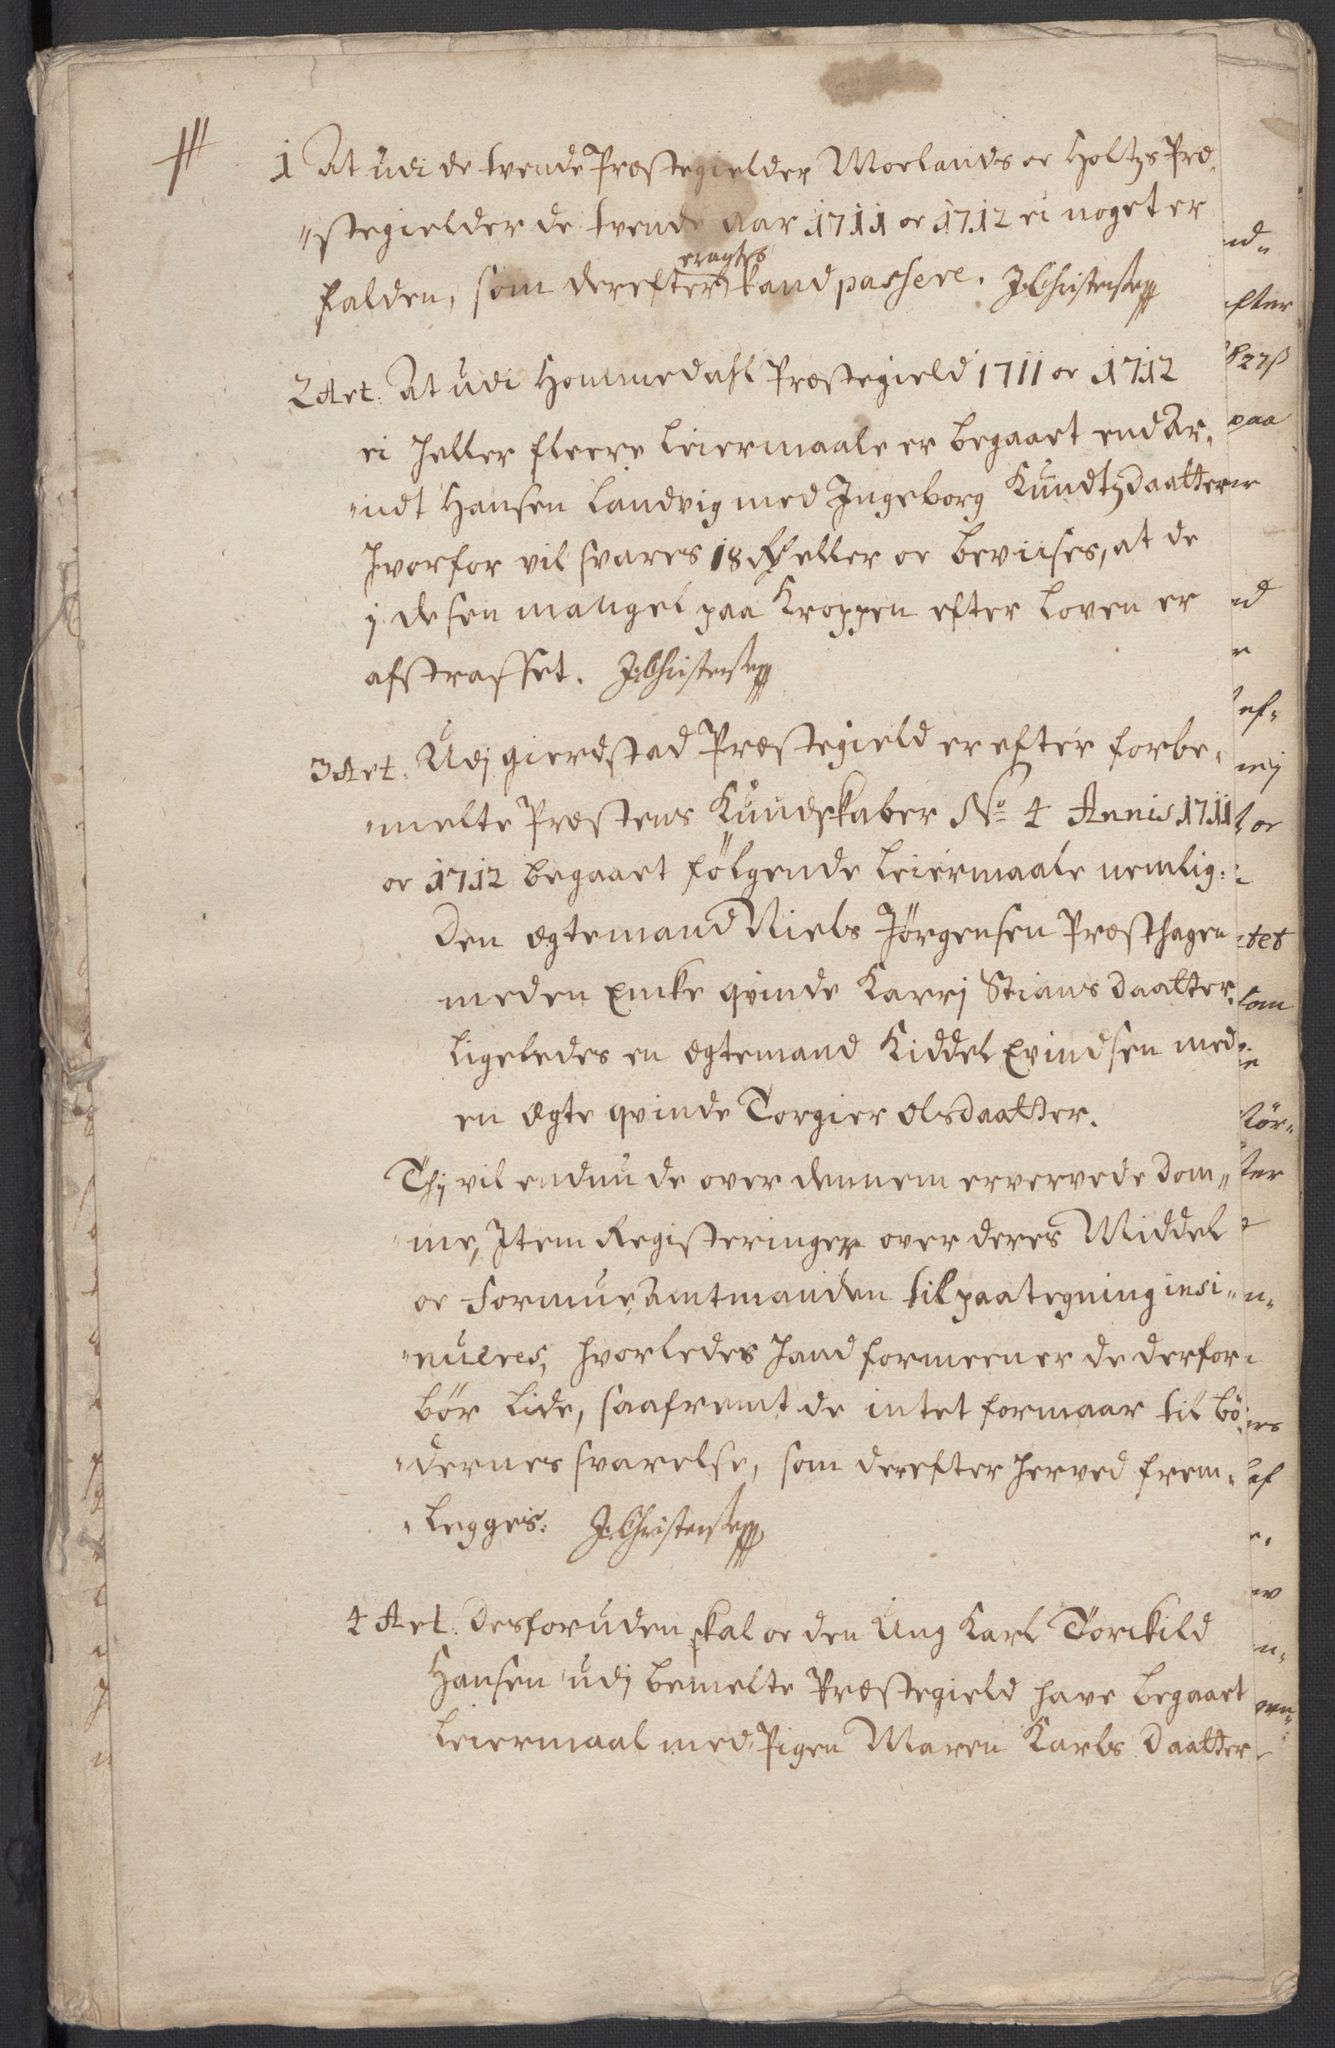 1 At udi de tvende Præstegielder Moelands oc Holtzs Præ,
"stegielder de tvende aar 1711 oc 1712 ei noget er
eragtes
falden, som derefter kand passere. J:Christensen
2 Art. At udi Hommedahl Præstegield 1711 oc 1712
ei heller fleere Leiermaale er begaaet end Ar,
"ndt Hansen Landvig med Ingeborg Kundtzdaatter
hvorfor vil svares 18 Rdr eller oc beviises, at de
j desen mangel paa Kroppen efter Loven er
afstraffet. J:Christensen
3 Art. Udj Gierdstad Præstegield er efter forbe,
"melte Præstens Kundskaber No 4 Annis 1711
oc 1712 begaaet følgende Leiermaale nemlig:
Den Ægtemand Niels Jørgensen Præsthagen
med en Encke qvinde Karrj Stians daatter,
Ligeledes en Ægtemand Kiddel Evindsen med
en Ægte qvinde Torgier Olsdaatter.
Thj vil endnu de over dennem ervervede Dom"
"me, Item Registeringer over deres Middel
oc Formue Amtmanden til paategning insi"
"nueres, hvorledes hand formeener de derfor
bør Lide, saafremt de intet formaar til bø,
"dernes svarelse, som derefter herved frem,
"Legges. J:Christensen
4 Art. Desforuden skal oc den Ung Karl Torckild
Hansen udj bemelte Præstegield have begaaet
Leiermaal med Pigen Maren Karls Daatter